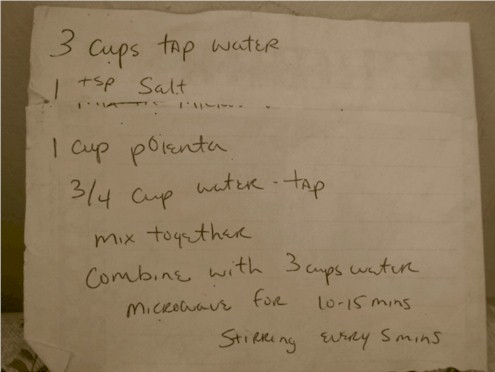 3 cups tap water
1 tsp Salt
1 cup polenta
3/4 cup water - tap
mix together
Combine with 3 cups water
microwave for 10-15 mins
Stirring every 5 mins